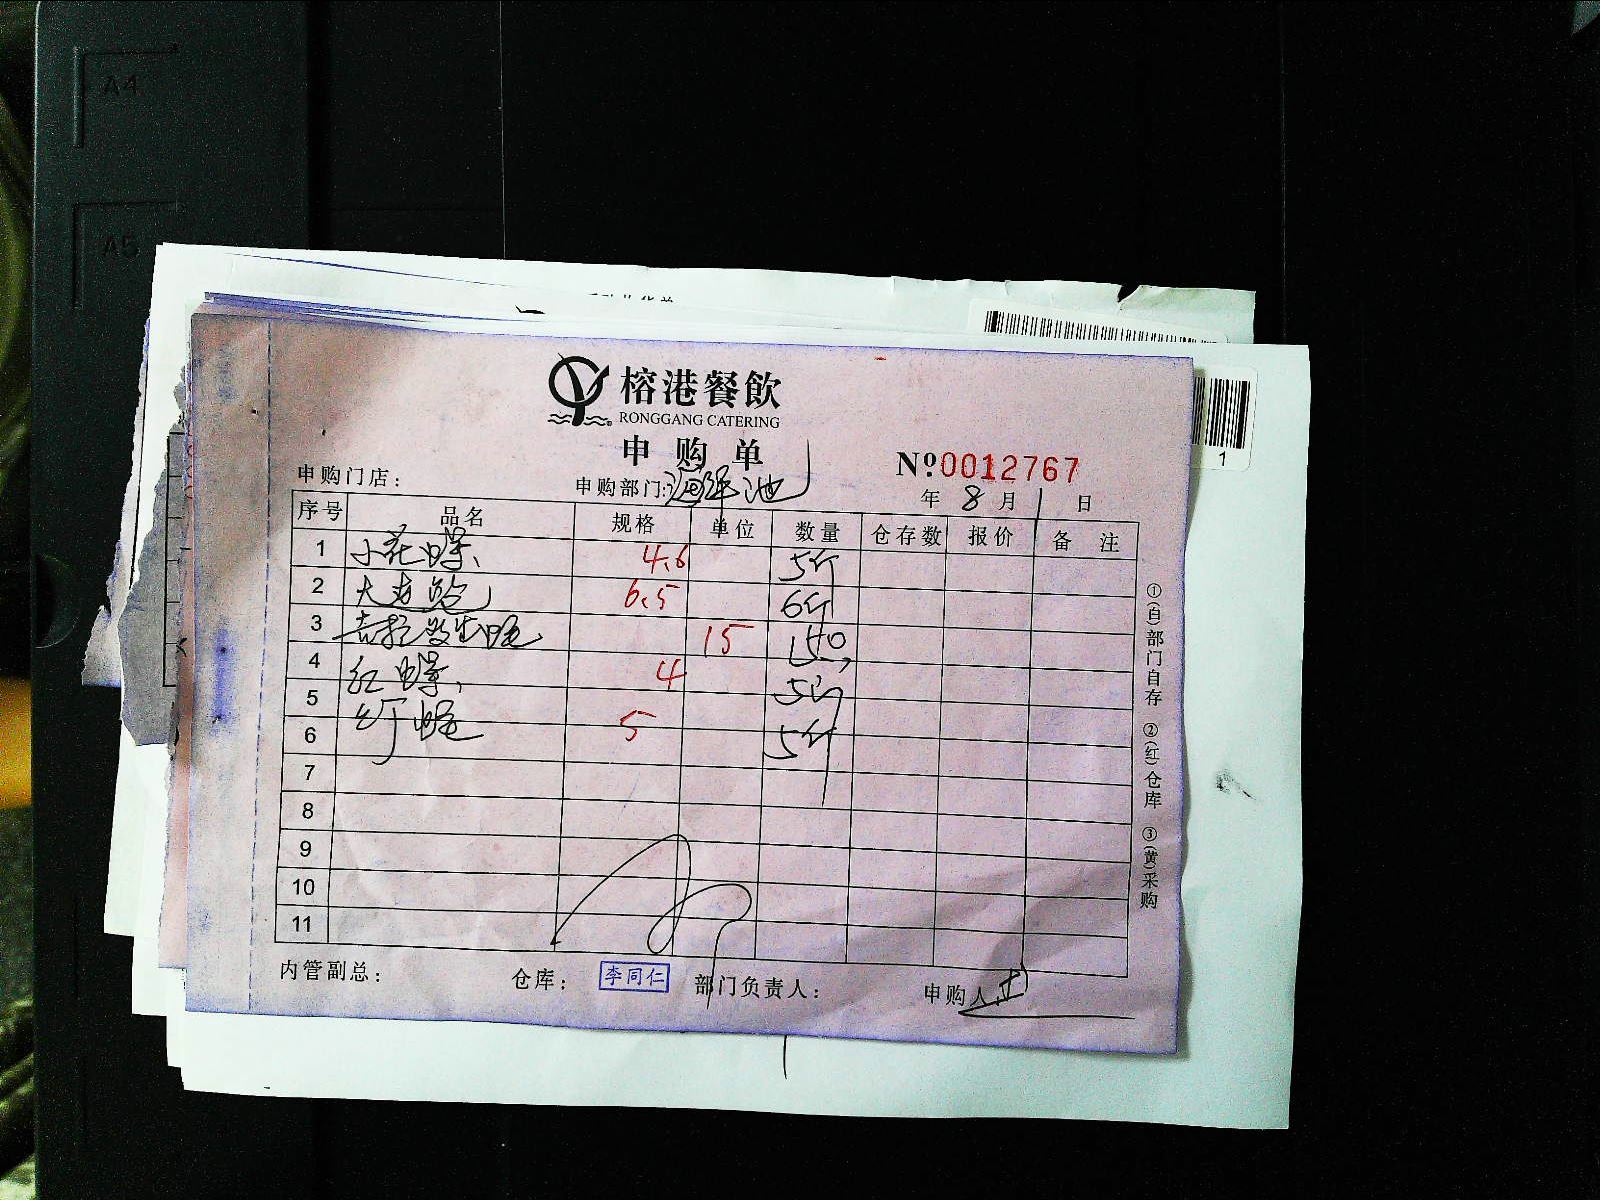 A4
A5
榕港餐飲
RONGGANG CATERING
申购单
№0012767
申购门店：
申购部门:海鲜池
年 8 月 1 日
序号 品名 规格 单位 数量 仓存数 报价 备 注
1 小花螺、 4.6 5斤
2 大走鲍 6.5 6斤
3 15 150
4 红螺、 4 5斤
5
6 5 5斤
7
8
9
10
11
内管副总：
仓库： 李同仁
部门负责人：
申购人
①(白)部门自存 ②(红)仓库 ③(黄)采购
1